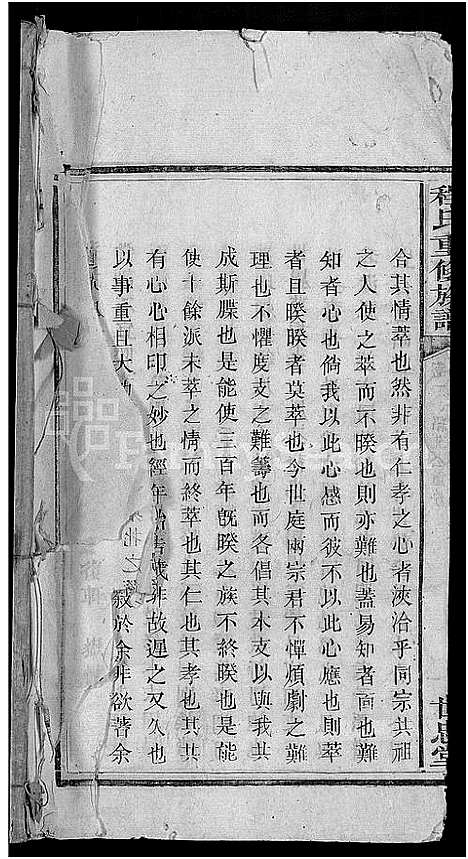 程氏重修族譜
世忠堂
合其情萃也然非有仁孝之心者浹洽乎同宗共祖
之人使之萃而不暌也則亦難也蓋易知者面也難
知者心也倘我以此心感而彼不以此心應也則萃
者且暌暌者莫萃也今世庭兩宗君不憚煩劇之難
理也不懼度支之難籌也而各倡其本支以與我共
成斯牒也是能使三百年旣暌之族不終暌也是能
使十餘派未萃之情而終萃也其仁也其孝也其共
有心心相印之妙也經年
非故遲之又久也
以事重且大
敍於余非欲著余